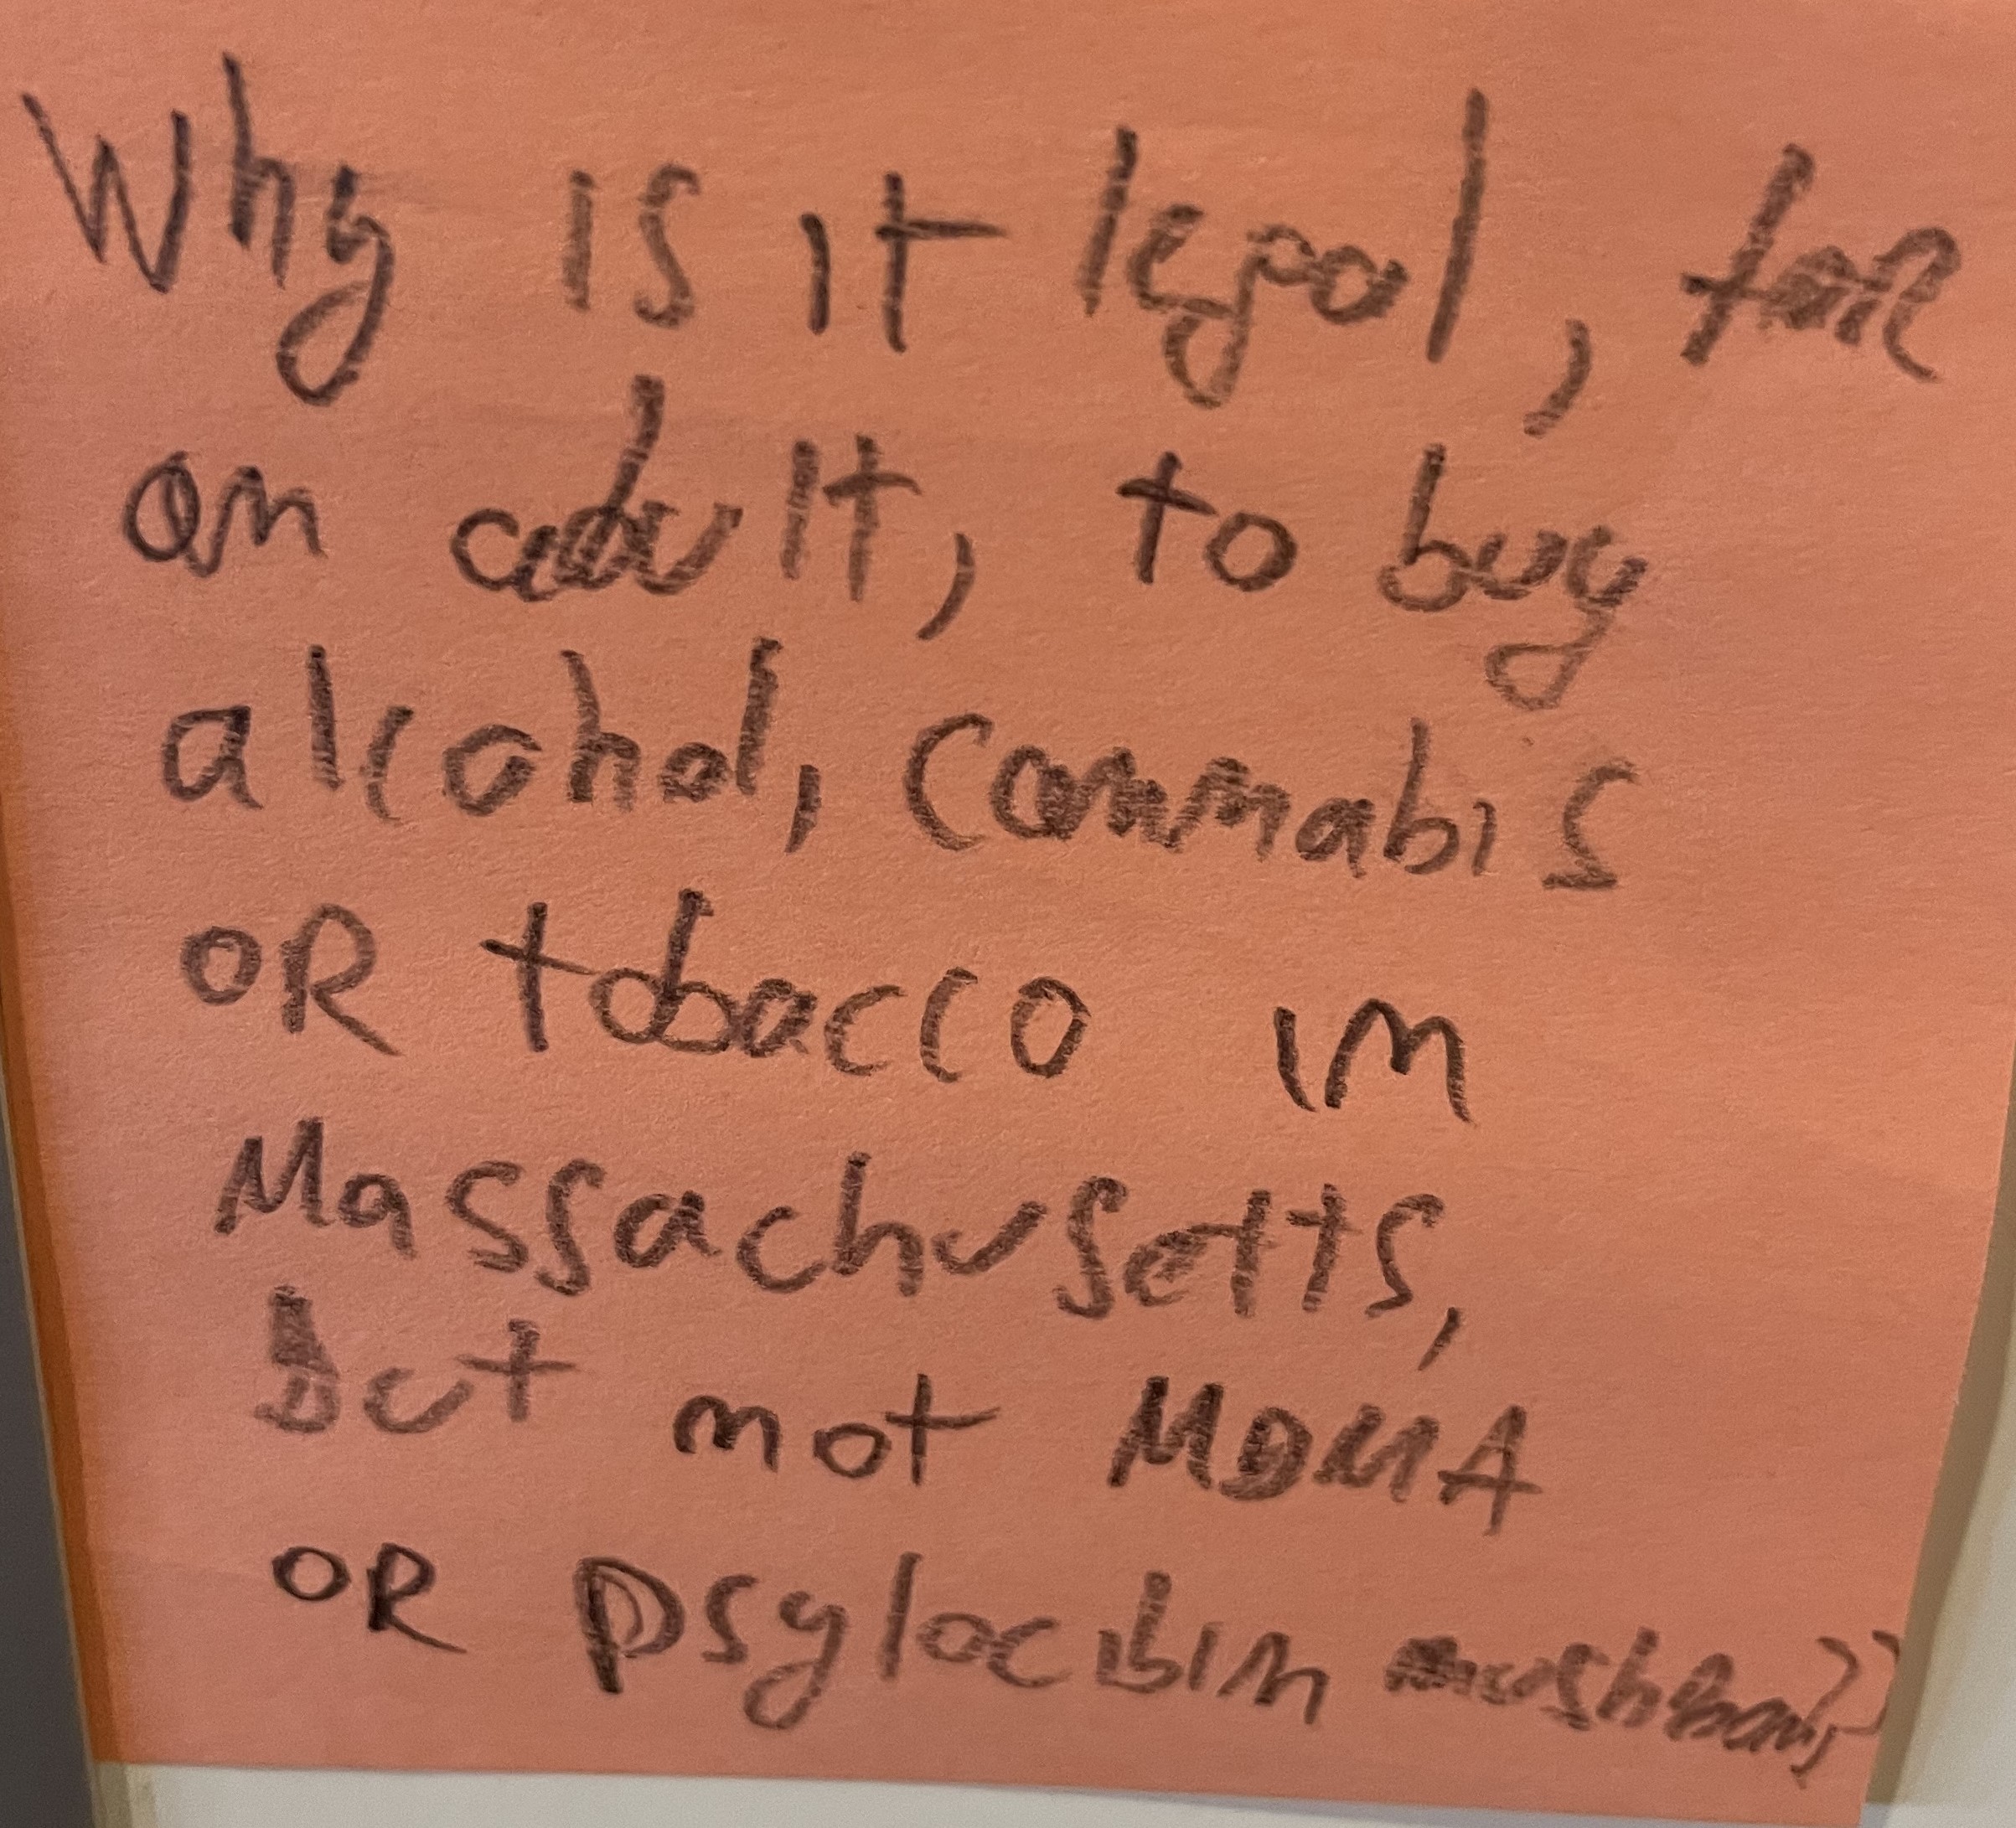 Why is it legal, for
an adult, to buy
alcohol, cannabis
OR tobacco in
Massachusetts,
But not MDMA
OR psylocibin mushrooms?